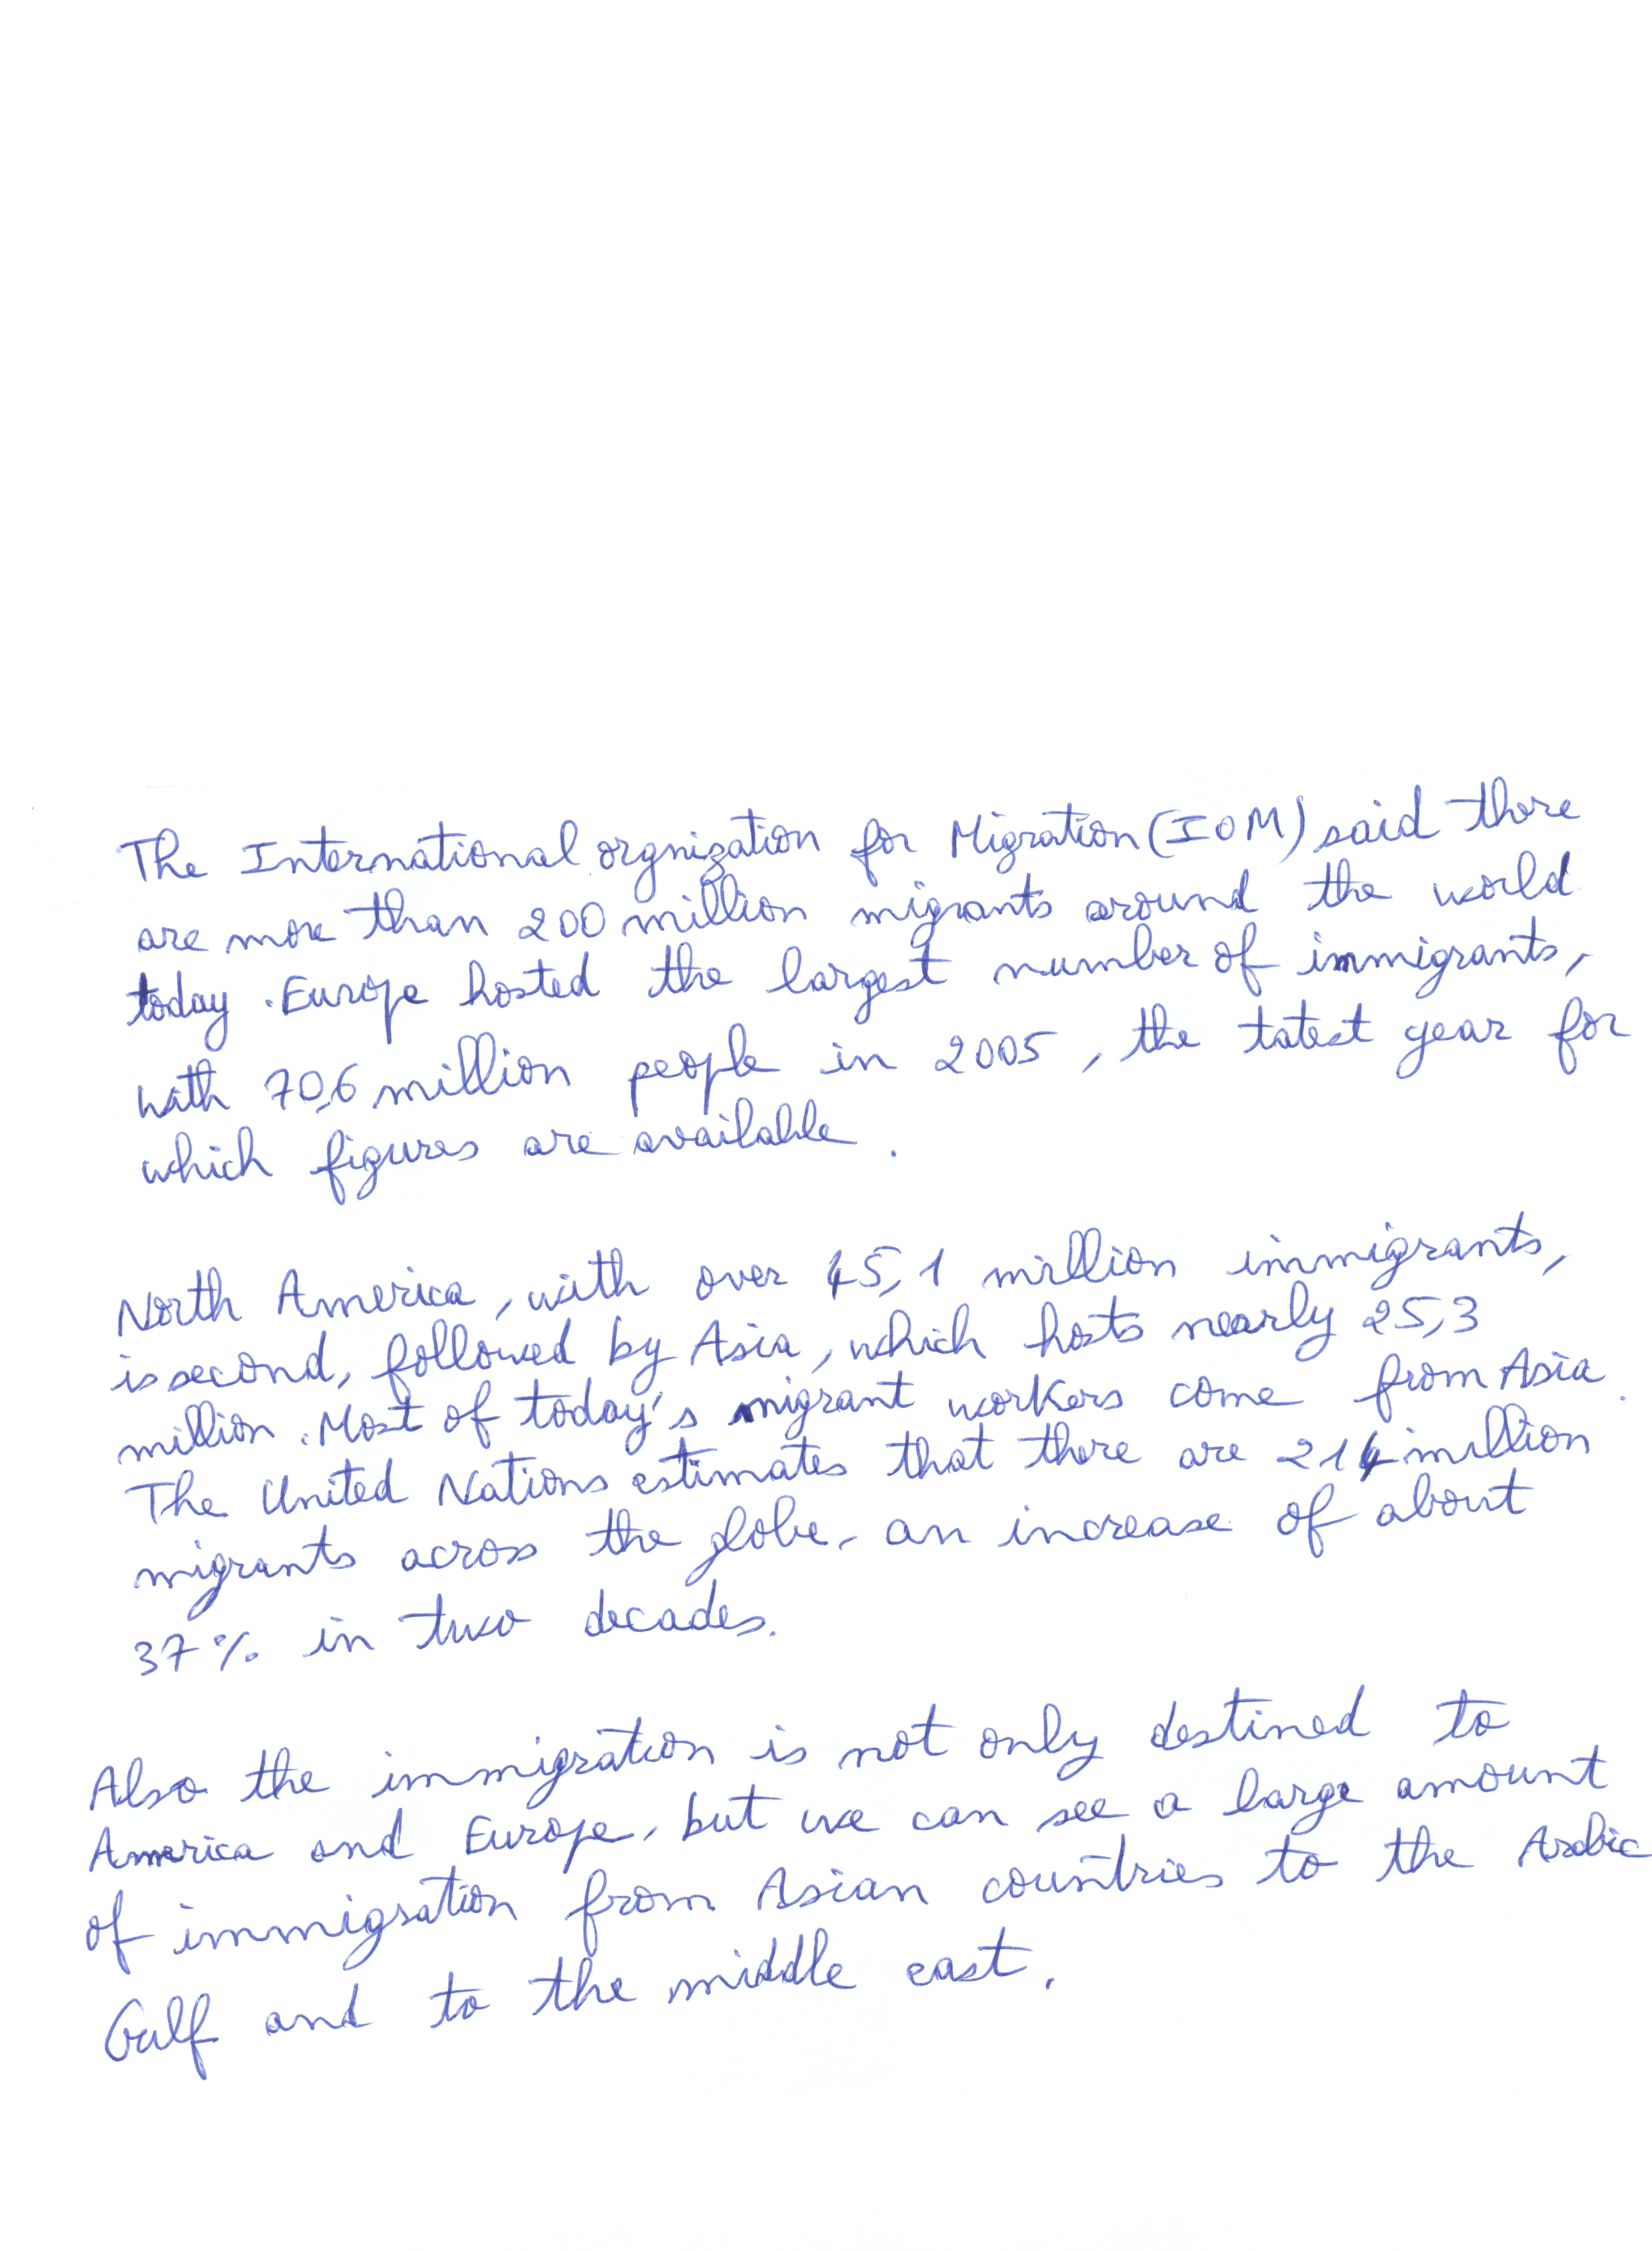 The International orgnization for Migration (IOM) said there
are more than 200 million migrants around the world
today. Europe hosted the largest number of immigrants,
with 70,6 million people in 2005, the tatest year for
which figures are available.
North America, with over 45,1 million immigrants,
is second, followed by Asia, which hosts nearly 25,3
million. Most of today's migrant workers come from Asia.
The United Nations estimates that there are 214 million
migrants across the globe, an increase of about
37% in two decades.
Also the immigration is not only destined to
America and Europe, but we can see a large amount
of immigration from Asian countries to the Arabic
Gulf and to the middle east.